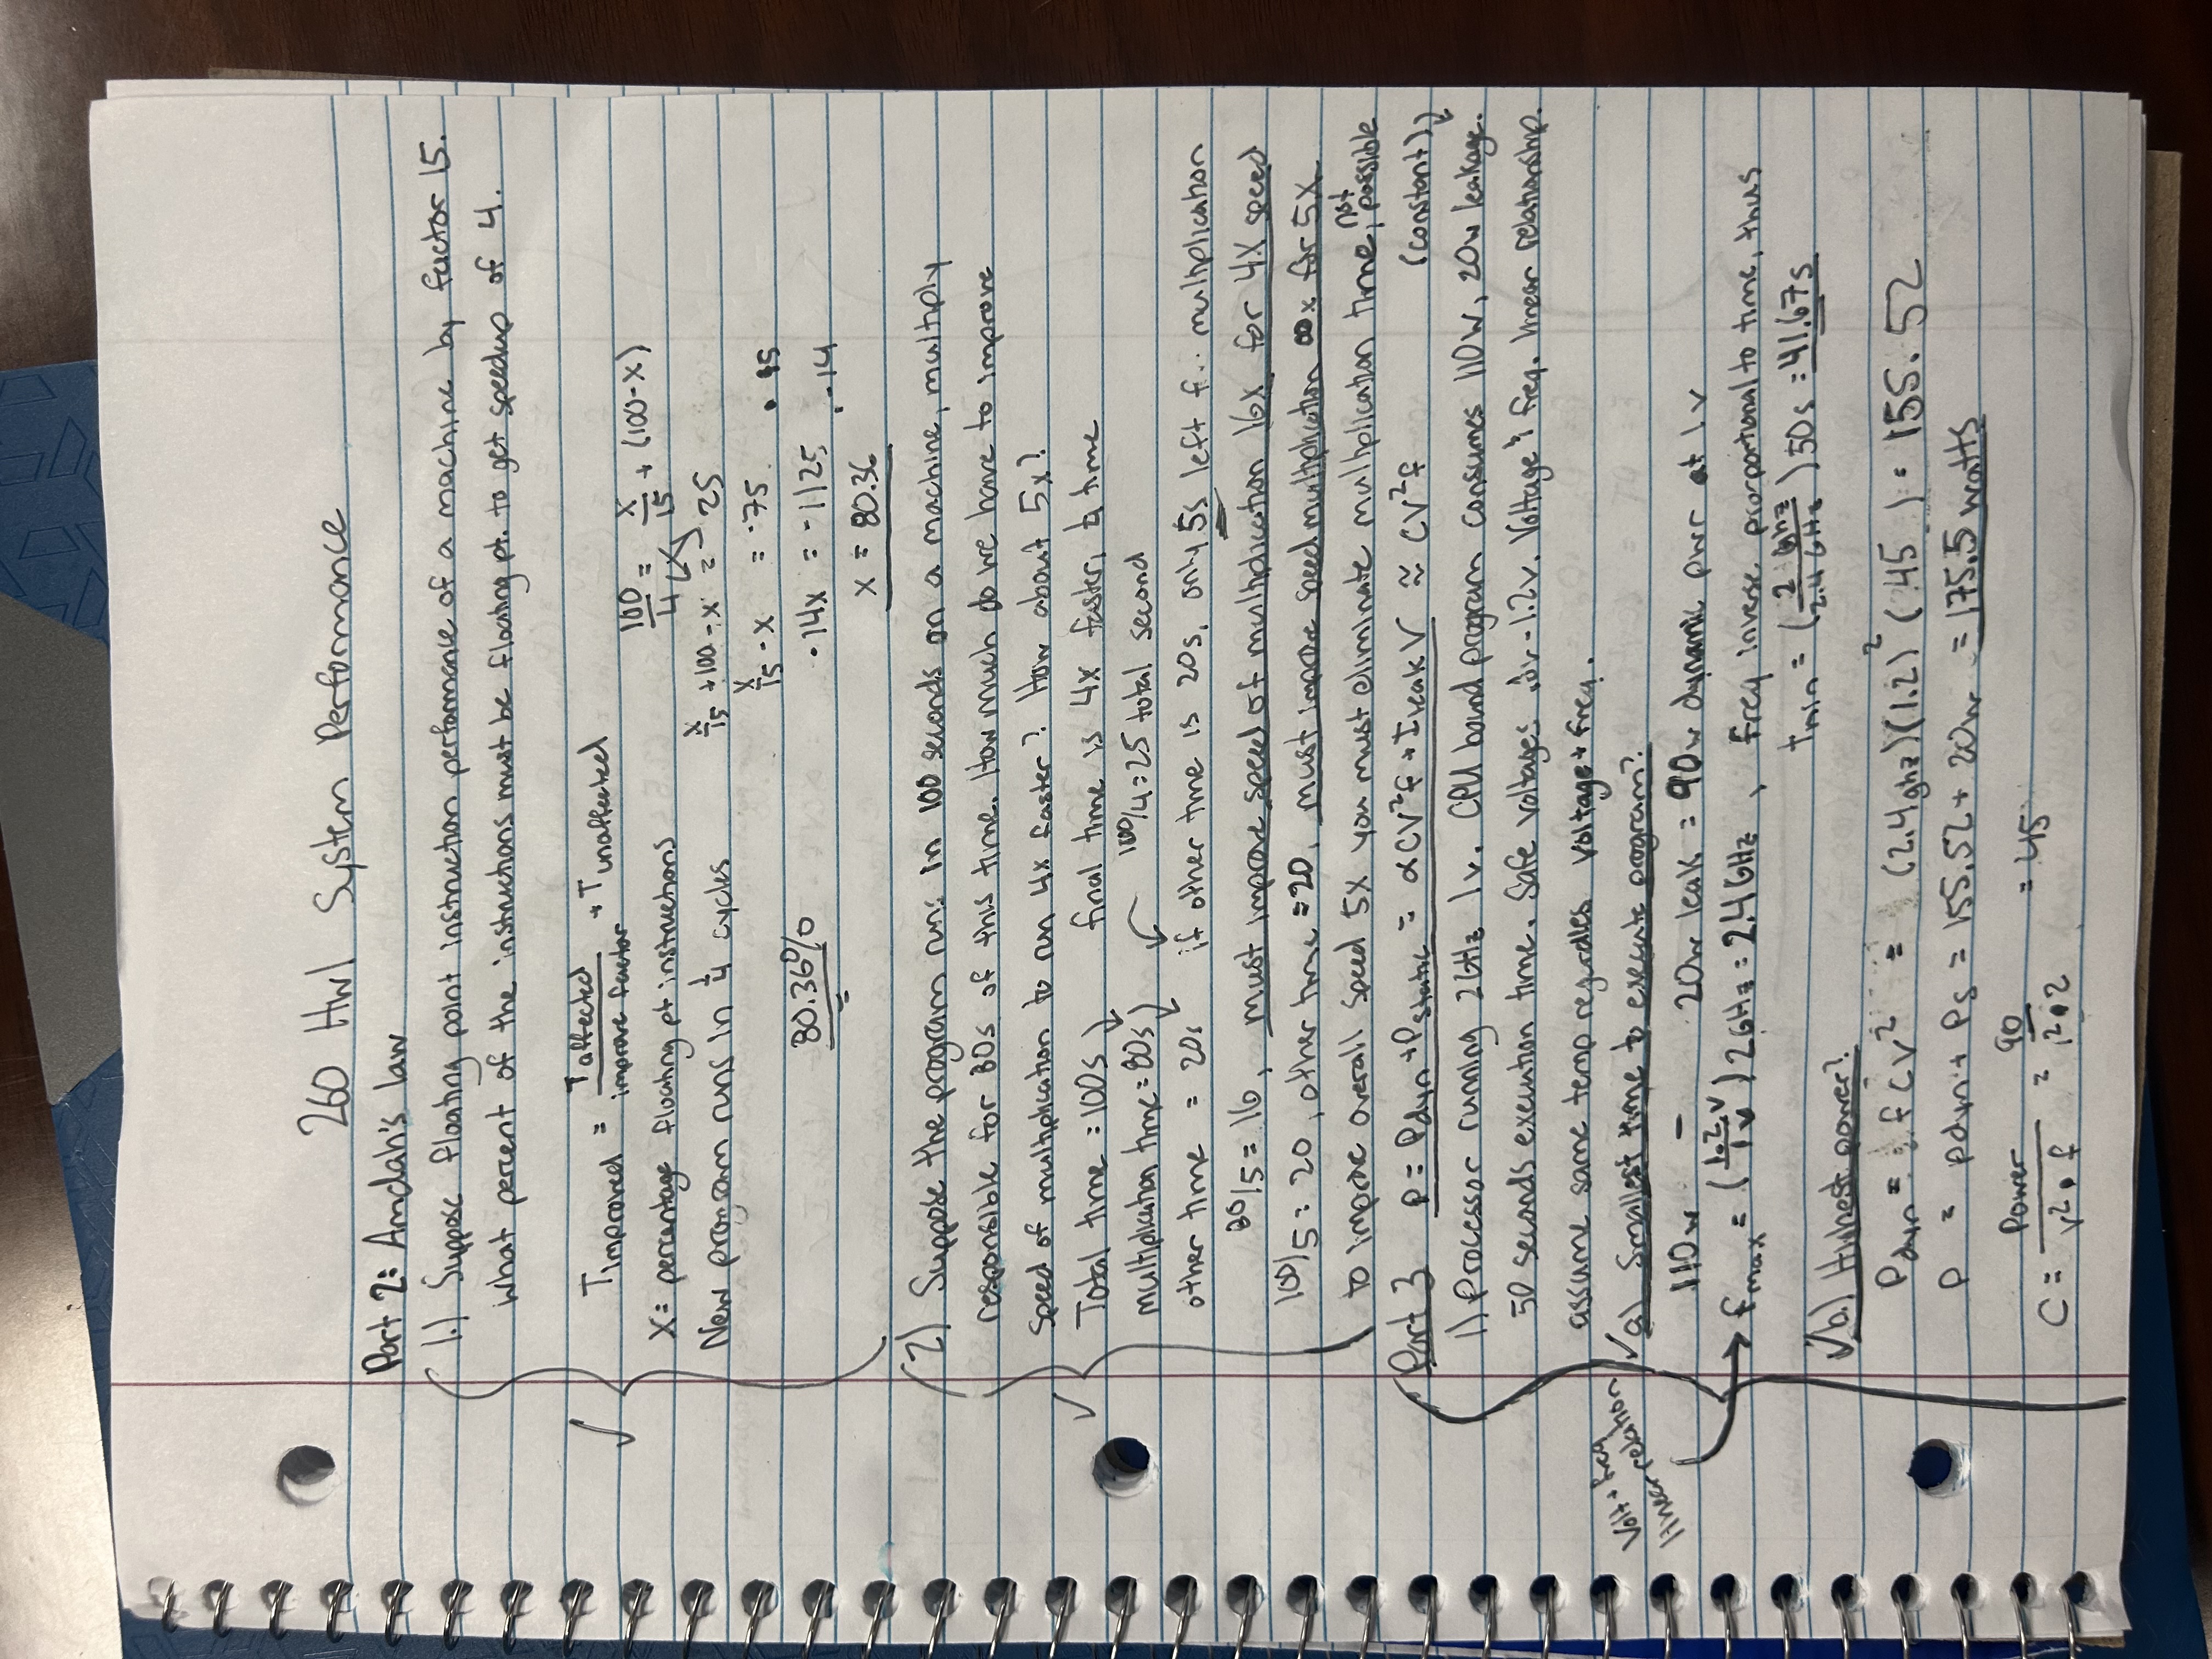 260 Hw1 System Performance
Part 2: Amdah's law
1.) Suppose floating point instruction performance of a machine by factor 15.
What percent of the instructions must be floating pt. to get speedup of 4.
Timproved = Taffected / improve factor + Tunaffected
100/4 = x/15 + (100-x)
X = percentage floating pt instructions
x/15 + 100 - x = 25
New program runs in 1/4 cycles
x/15 - x = -75 • 15
80.36%
-14x = -1125 ÷ -14
x = 80.36
2) Suppose the program runs in 100 seconds on a machine, multiply
responsible for 80s of this time. How much do we have to improve
speed of multiplication to run 4x faster? How about 5x?
Total time = 100s final time is 4x faster, 1/4 time
multiplication time = 80s 100/4 = 25 total second
other time = 20s if other time is 20s, only 5s left f.. multiplication
80/5 = 16, must improve speed of multiplication 16x for 4X speed
100/5 = 20, other time = 20, must improve speed multiplication ∞x for 5X
to improve overall speed 5X you must eliminate multiplication time, not possible
Part 3 P = Pdyn + Pstatic = αCV²f + Ileak V ≈ CV²f (constant)
1) Processor running 2GHz 1v. CPU bound program consumes 110w, 20w leakage.
50 seconds execution time. Safe voltages .8v - 1.2v. Voltage & freq. linear relationship.
assume same temp regardles voltage + freq.
Volt + freq
linear relation
a) Smallest time to execute program?
110w - 20w leak = 90w dynamic pwr at 1v
fmax = (1.2v / 1v) 2GHz = 2.4GHz, freq inverse proportional to time, thus
tmin = (2 Ghz / 2.4 GHz) 50s = 41.67s
b.) Highest power?
Pdyn = fCV² = (2.4ghz)(1.2)²(45) = 155.52
P = Pdyn + Ps = 155.52 + 20w = 175.5 watts
C = Power / v² • f = 90 / 1² • 2 = 45